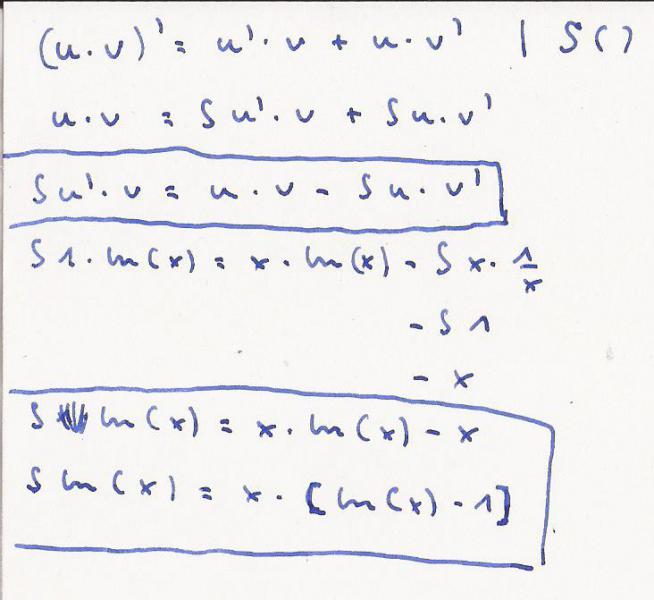 (u·v)' = u'·v + u·v' | ∫()
u·v = ∫u'·v + ∫u·v'
∫u'·v = u·v - ∫u·v'
∫1·ln(x) = x·ln(x) - ∫x·1/x
-∫1
- x
∫ ln(x) = x·ln(x) - x
∫ln(x) = x·[ln(x) - 1]